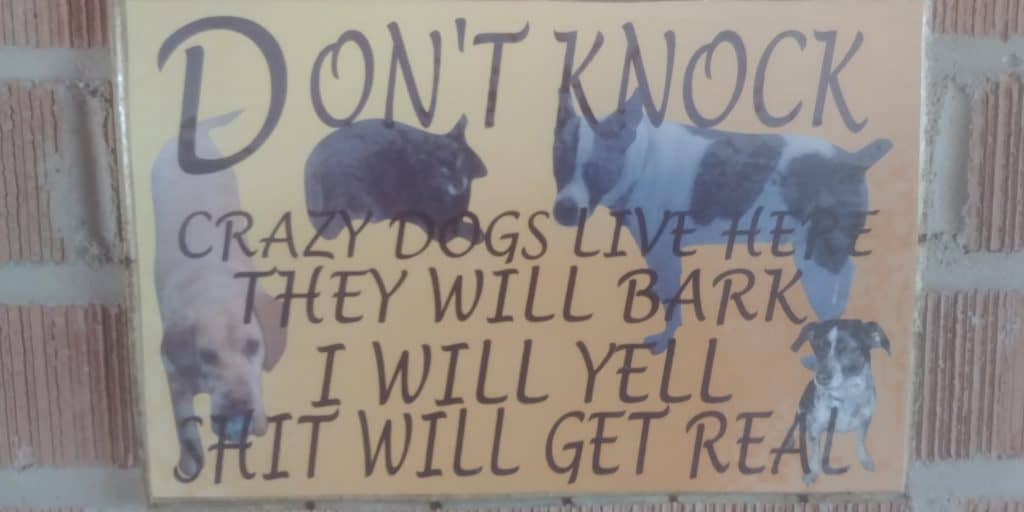 DON'T KNOCK
CRAZY DOGS LIVE HERE
THEY WILL BARK
I WILL YELL
SHIT WILL GET REAL